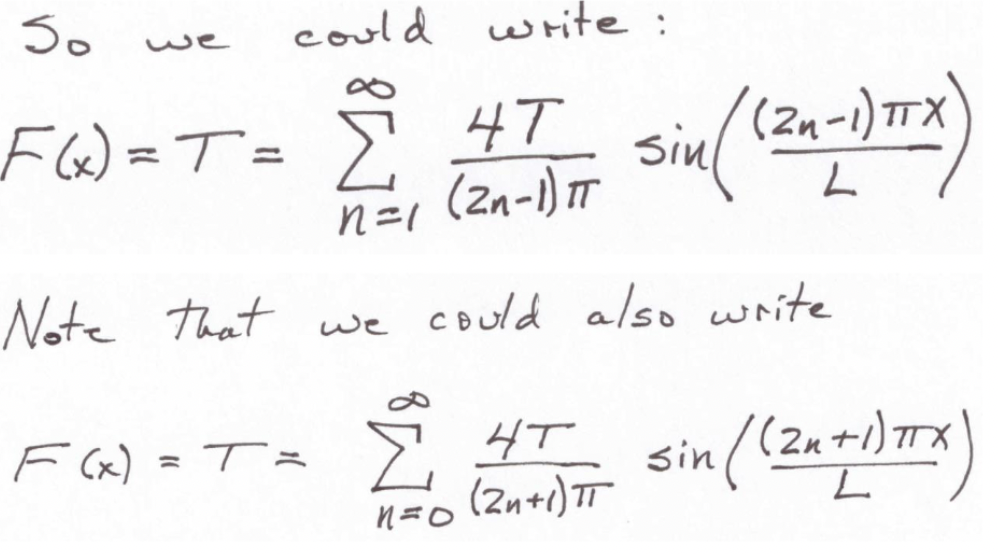 So we could write:
F(x) = T = \sum_{n=1}^{\infty} \frac{4T}{(2n-1)\pi} \sin\left(\frac{(2n-1)\pi x}{L}\right)
Note that we could also write
F(x) = T = \sum_{n=0}^{\infty} \frac{4T}{(2n+1)\pi} \sin\left(\frac{(2n+1)\pi x}{L}\right)